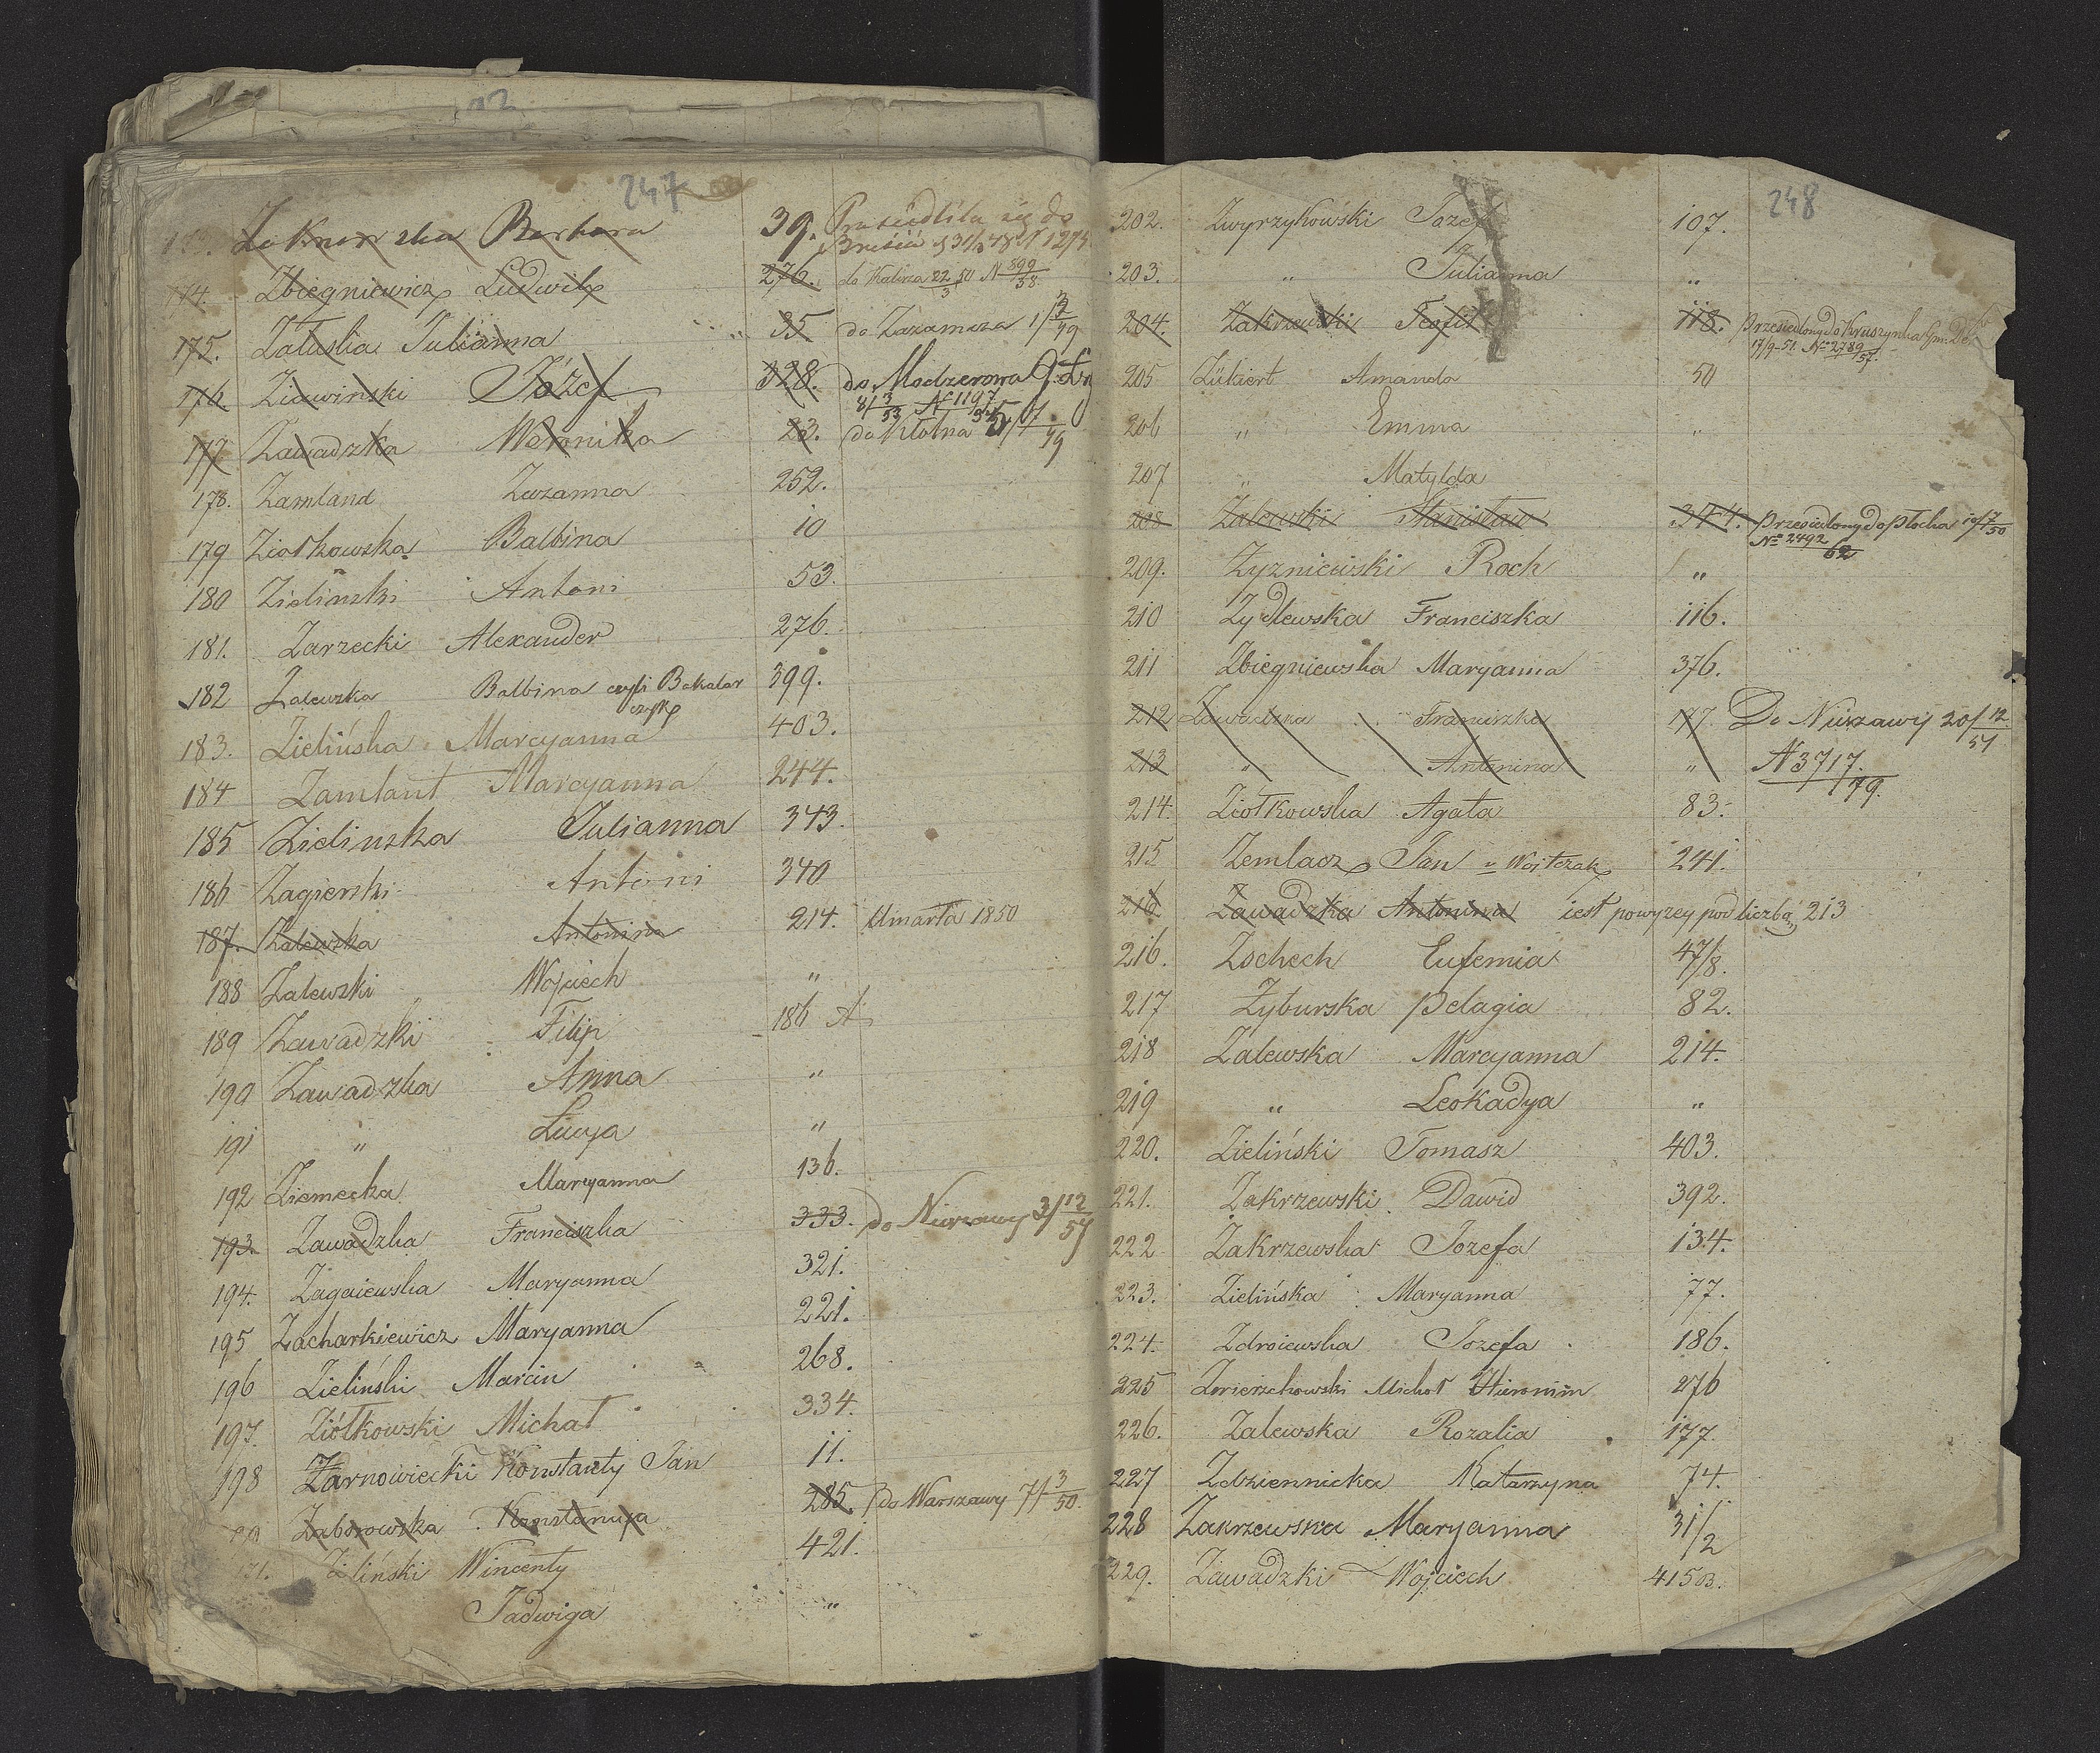 247
Barbara 39. Przesiedliła się do
174. Zbiegniewicz Ludwik 276. do Kalisza 22/3 50 N 899/58
175. Załuska Julianna 35 do Zazamcza 1/3 49
176. Józef 328. do Modzerowa
8/3 53 N 1197
177 Zawadzka Weronika 23. do Kłotna
178. Zamland Zuzanna 252.
179 Ziołkowska Balbina 10
180 Zielinski Antoni 53.
181. Zarzecki Alexander 276.
182 Zalewska Balbina czyli Bakalar 399.
czyk
183. Zielińska Maryanna 403.
184 Zamlant Maryanna 244.
185 Zielinska Julianna 343.
186 Zagierski Antoni 340
187. Zalewska Antonina 214. Umarła 1850
188 Zalewski Wojciech "
189 Zawadzki Filip 186 A
190 Zawadzka Anna "
191 " Lucya "
192 Ziemecka Maryanna 136.
193. Zawadzka Franciszka 333. do Nieszawy 3/12 51
194. Zagaiewska Maryanna 321.
195 Zacharkiewicz Maryanna 221.
196 Zieliński Marcin 268.
197. Ziółkowski Michał 334.
198 Żarnowiecki Konstanty Jan 11.
Zaborowska Konstancya 285. do Warszawy 7/3 50.
Zieliński Wincenty 421.
Jadwiga "
248
202. Zwyrzykowski Jozef 107.
203. " Julianna "
204. Zakrzewski Teofil 118. Przesiedlony do Kruszynka Gm.
17/9 51. No 2789/57.
205 Zükiert Amanda 50
206 " Emma "
207 " Matylda
208 Zalewski Stanisław 344. Przesiedlony do Płocka 10/7 50
No 2492/62
209. Zyzniewski Roch "
210 Zydlewska Franciszka 116.
211 Zbiegniewska Maryanna 376.
212 Zawadzka Franciszka 177. Do Nieszawy 20/12 51
213 " Antonina " N 3717./79.
214. Ziołkowska Agata 83.
215 Zemlacz Jan v Wojtczak 241.
216 Zawadzka Antonina iest powyzey pod liczbą 213
216. Zochech Eufemia 47/8.
217 Zyburska Pelagia 82.
218 Zalewska Maryanna 214.
219 " Leokadya "
220. Zieliński Tomasz 403.
221. Zakrzewski Dawid 392.
222 Zakrzewska Jozefa 134.
223. Zielińska Maryanna 77.
224. Zdroiewska Jozefa 186.
225 Zwierzchowski Michał Hieronim 276
226. Zalewska Rozalia 177.
227 Zdziennicka Katarzyna 74.
228 Zakrzewska Maryanna 31/2
229. Zawadzki Wojciech 415 B.